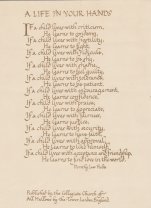 A LIFE IN YOUR HANDS
If a child lives with criticism,
He learns to condemn,
If a child lives with hostility,
He learns to fight,
If a child lives with ridicule,
He learns to be shy,
If a child lives with shame,
He learns to feel guilty,
If a child lives with tolerance,
He learns to be patient,
If a child lives with encouragement,
He learns confidence,
If a child lives with praise,
He learns to appreciate,
If a child lives with fairness,
He learns justice,
If a child lives with security,
He learns to have faith,
If a child lives with approval,
He learns to like himself,
If a child lives with acceptance and friendship,
He learns to find love in the world.
Dorothy Law Nolte
Published by the Collegian Church of
All Hallows by the Tower London England